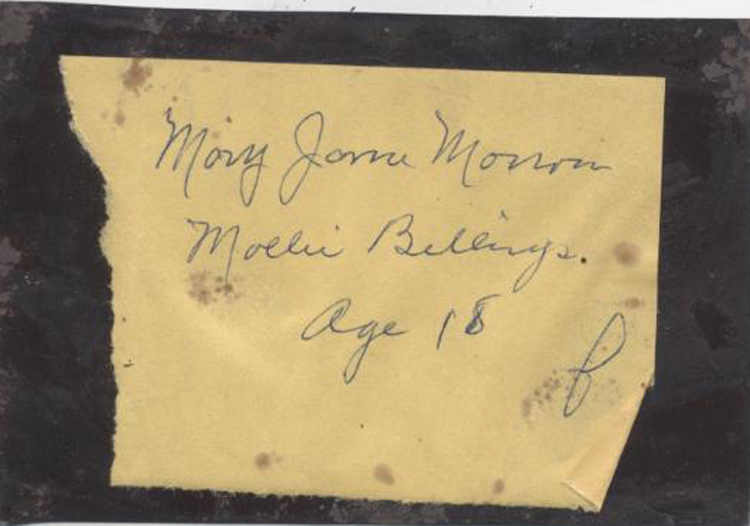 Mary Jane
Mollie Billings.
Age 18